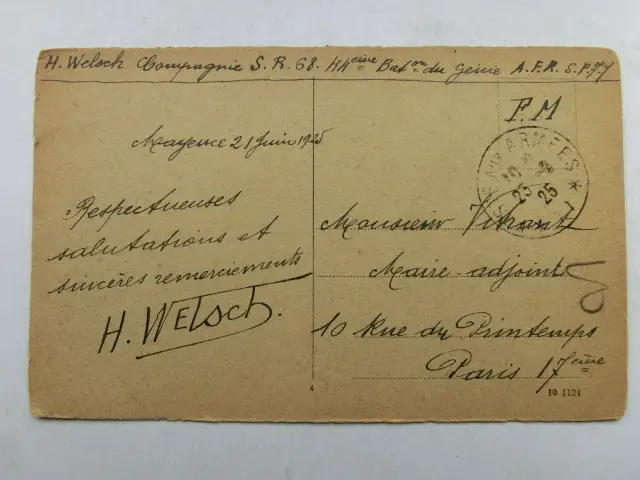 H. Welsch Compagnie S. R. 68. 44ème Baton du Génie A.F.R. S.P. 77
F.M
AUX ARMEES *
23 25
Mayence 21 Juin 1925
Respectueuses
salutations et
sincères remerciements
H. WELSCH.
Monsieur
Maire-adjoint
10 Rue du Printemps
Paris 17ème
4
10 1124